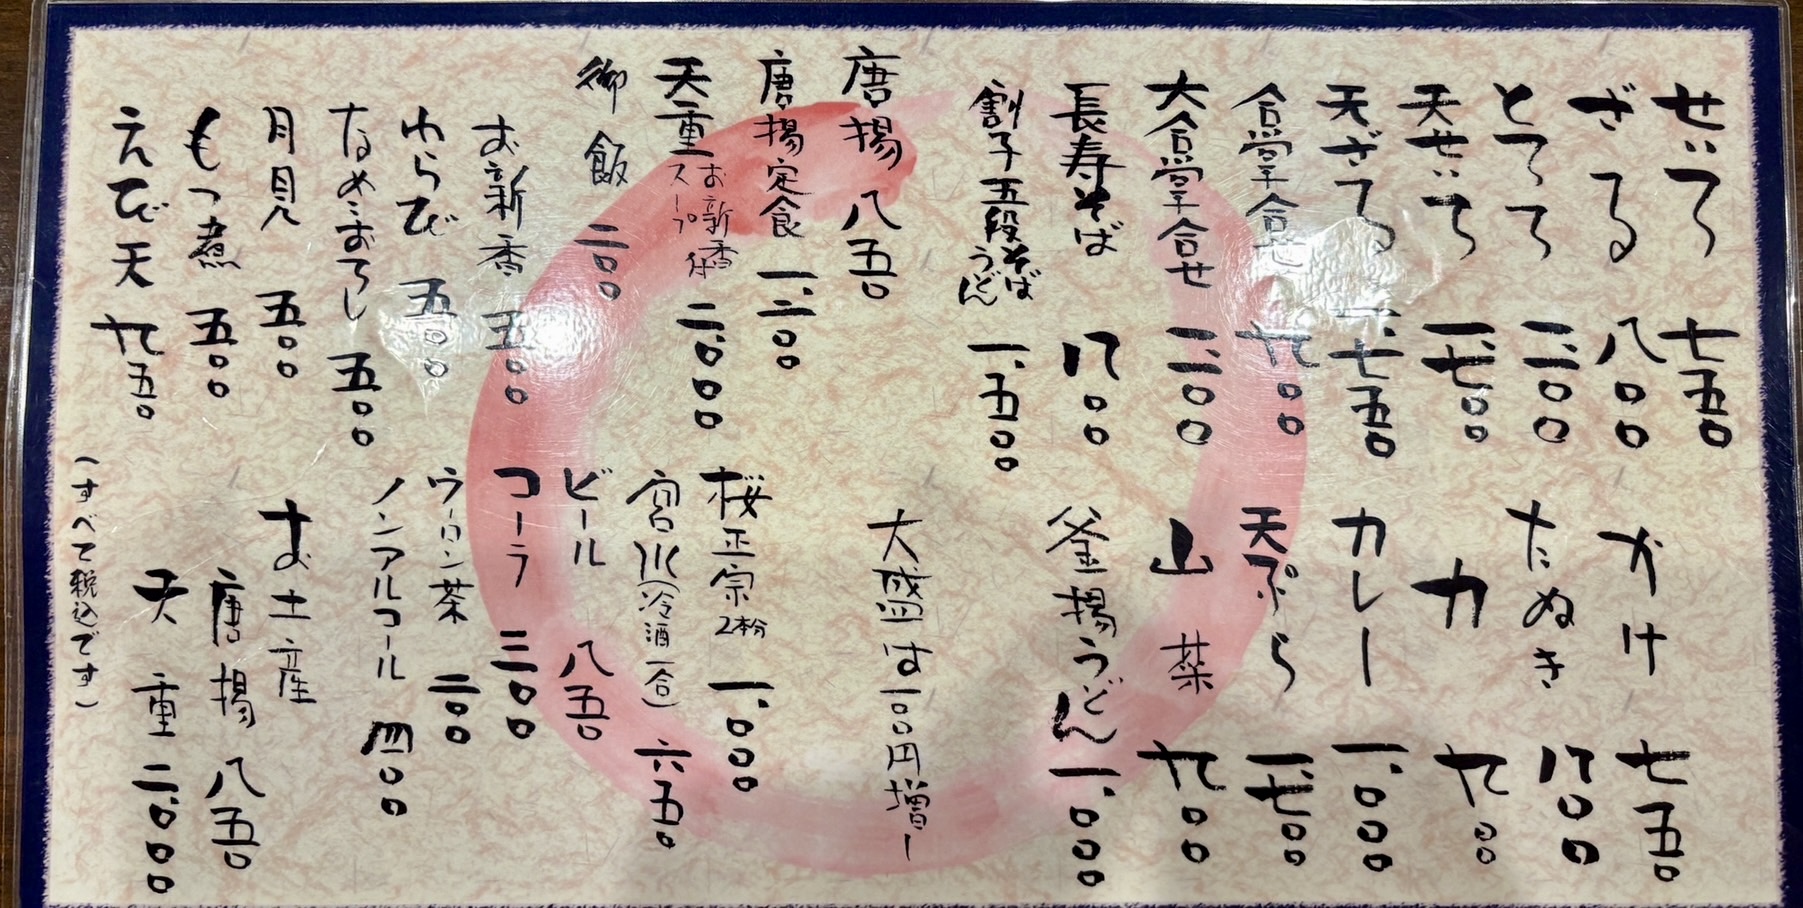 せいろ 七五〇
ざる 八〇〇
とろろ
天せいろ 一、七〇〇
天ざる 一、七五〇
合せ 九〇〇
大合 合せ
長寿そば 八〇〇
割子五段そば うどん 一、五〇〇
唐揚 八五〇
唐揚定食 一、二〇〇
天重 お新香 スープ 付 二、〇〇〇
御飯 二〇〇
お新香 五〇〇
わらび 五〇〇
なめこおろし 五〇〇
月見 五〇〇
もつ煮 五〇〇
えび天 九五〇
かけ 七五〇
たぬき 八〇〇
力 九〇〇
カレー 一、〇〇〇
天ぷら 一、七〇〇
山菜 九〇〇
釜揚うどん 一、〇〇〇
大盛は一〇〇円増し
桜正宗 2本分 一、〇〇〇
宮川(冷酒一合) 六五〇
ビール 八五〇
コーラ 三〇〇
ウーロン茶
ノンアルコール 四〇〇
お土産
唐揚 八五〇
天重 二、〇〇〇
(すべて税込です)